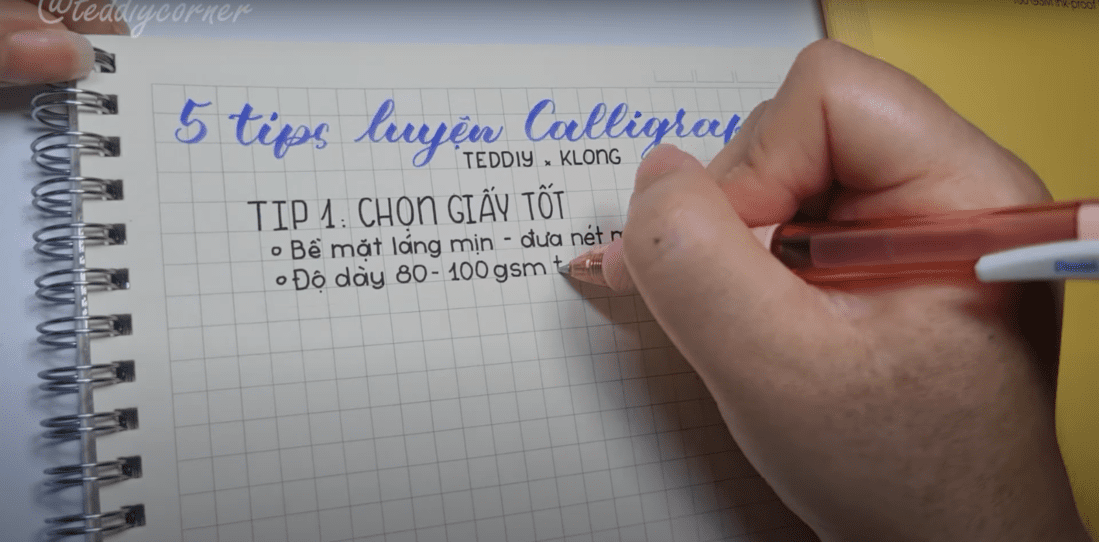 @teddiycorner
5 tips luyện
TEDDIY x KLONG
TIP 1: CHỌN GIẤY TỐT
Bề mặt láng mịn - đưa nét
Độ dày 80 - 100 gsm